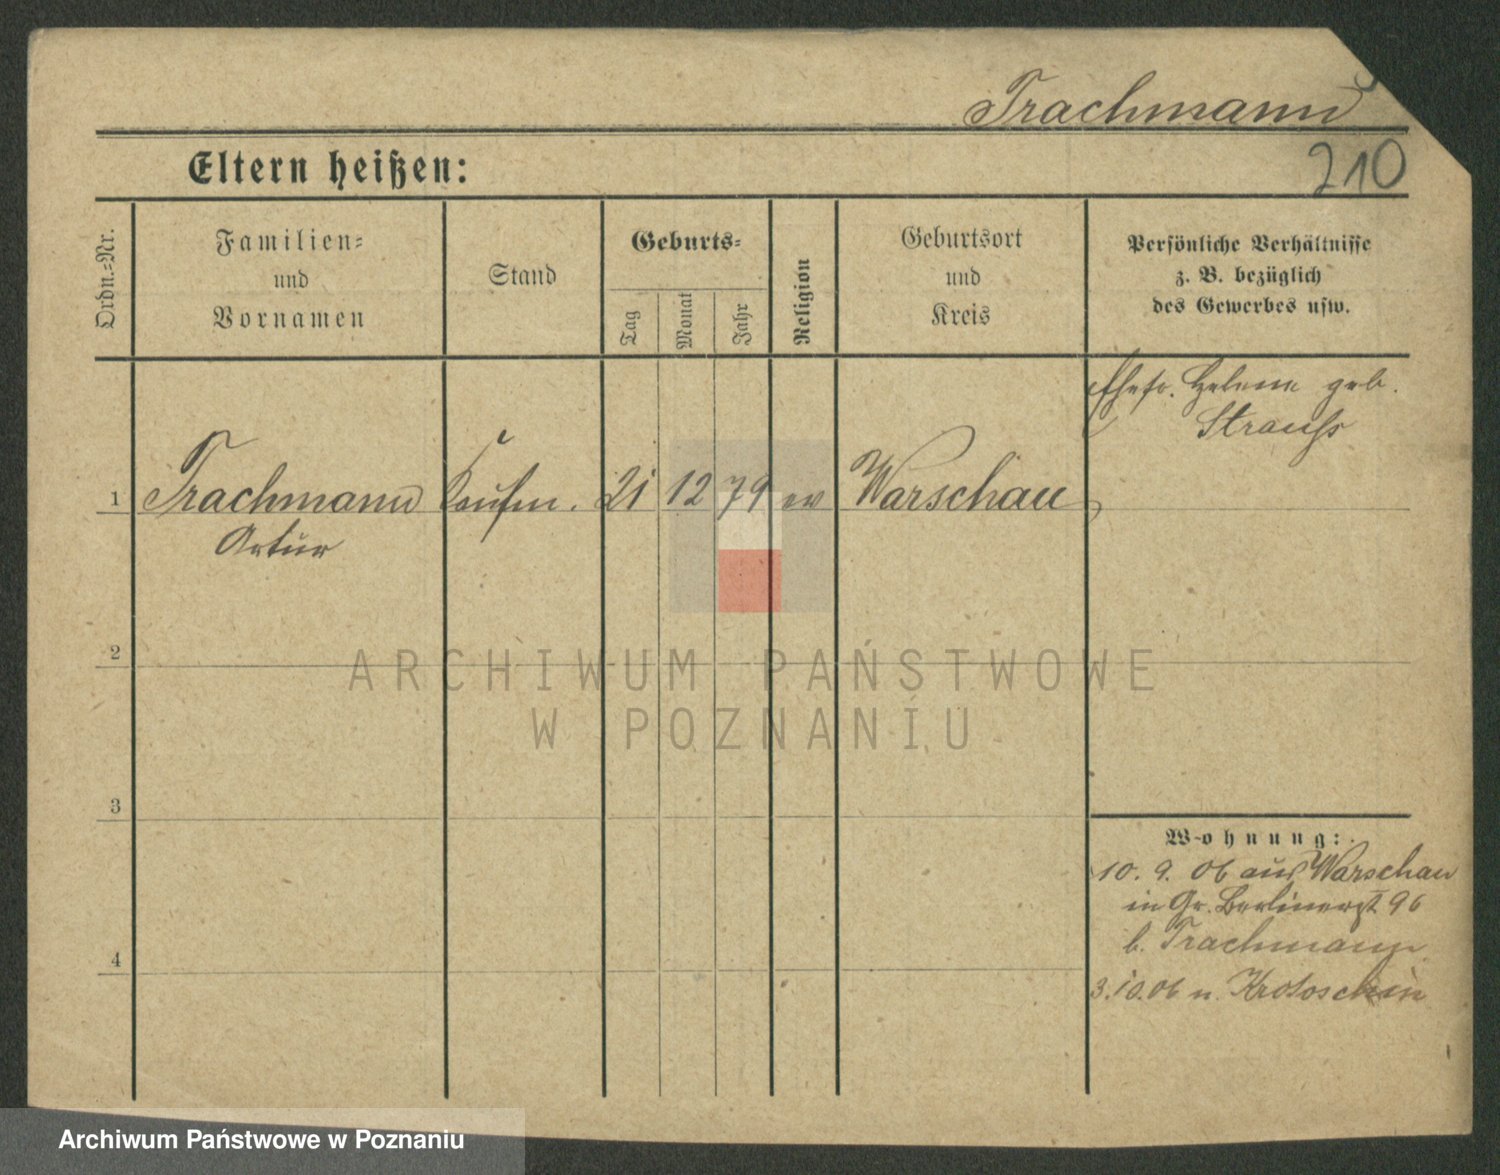 Trachmann
210
Eltern heißen:
Ordn.-Nr.
Familien- und Vornamen
Stand
Geburts-
Tag
Monat
Jahr
Religion
Geburtsort und Kreis
Persönliche Verhältnisse
z. B. bezüglich
des Gewerbes usw.
Ehefr. Helene geb.
Strauss
1 Trachmann Kaufm. 21 12 79 ev Warschau
Artur
2
3
4
Wohnung:
10. 9. 06 aus Warschau
in Gr. Berlinerst 96
b. Trachmann
3.10.06 n. Krotoschin
ARCHIWUM PAŃSTWOWE
W POZNANIU
Archiwum Państwowe w Poznaniu